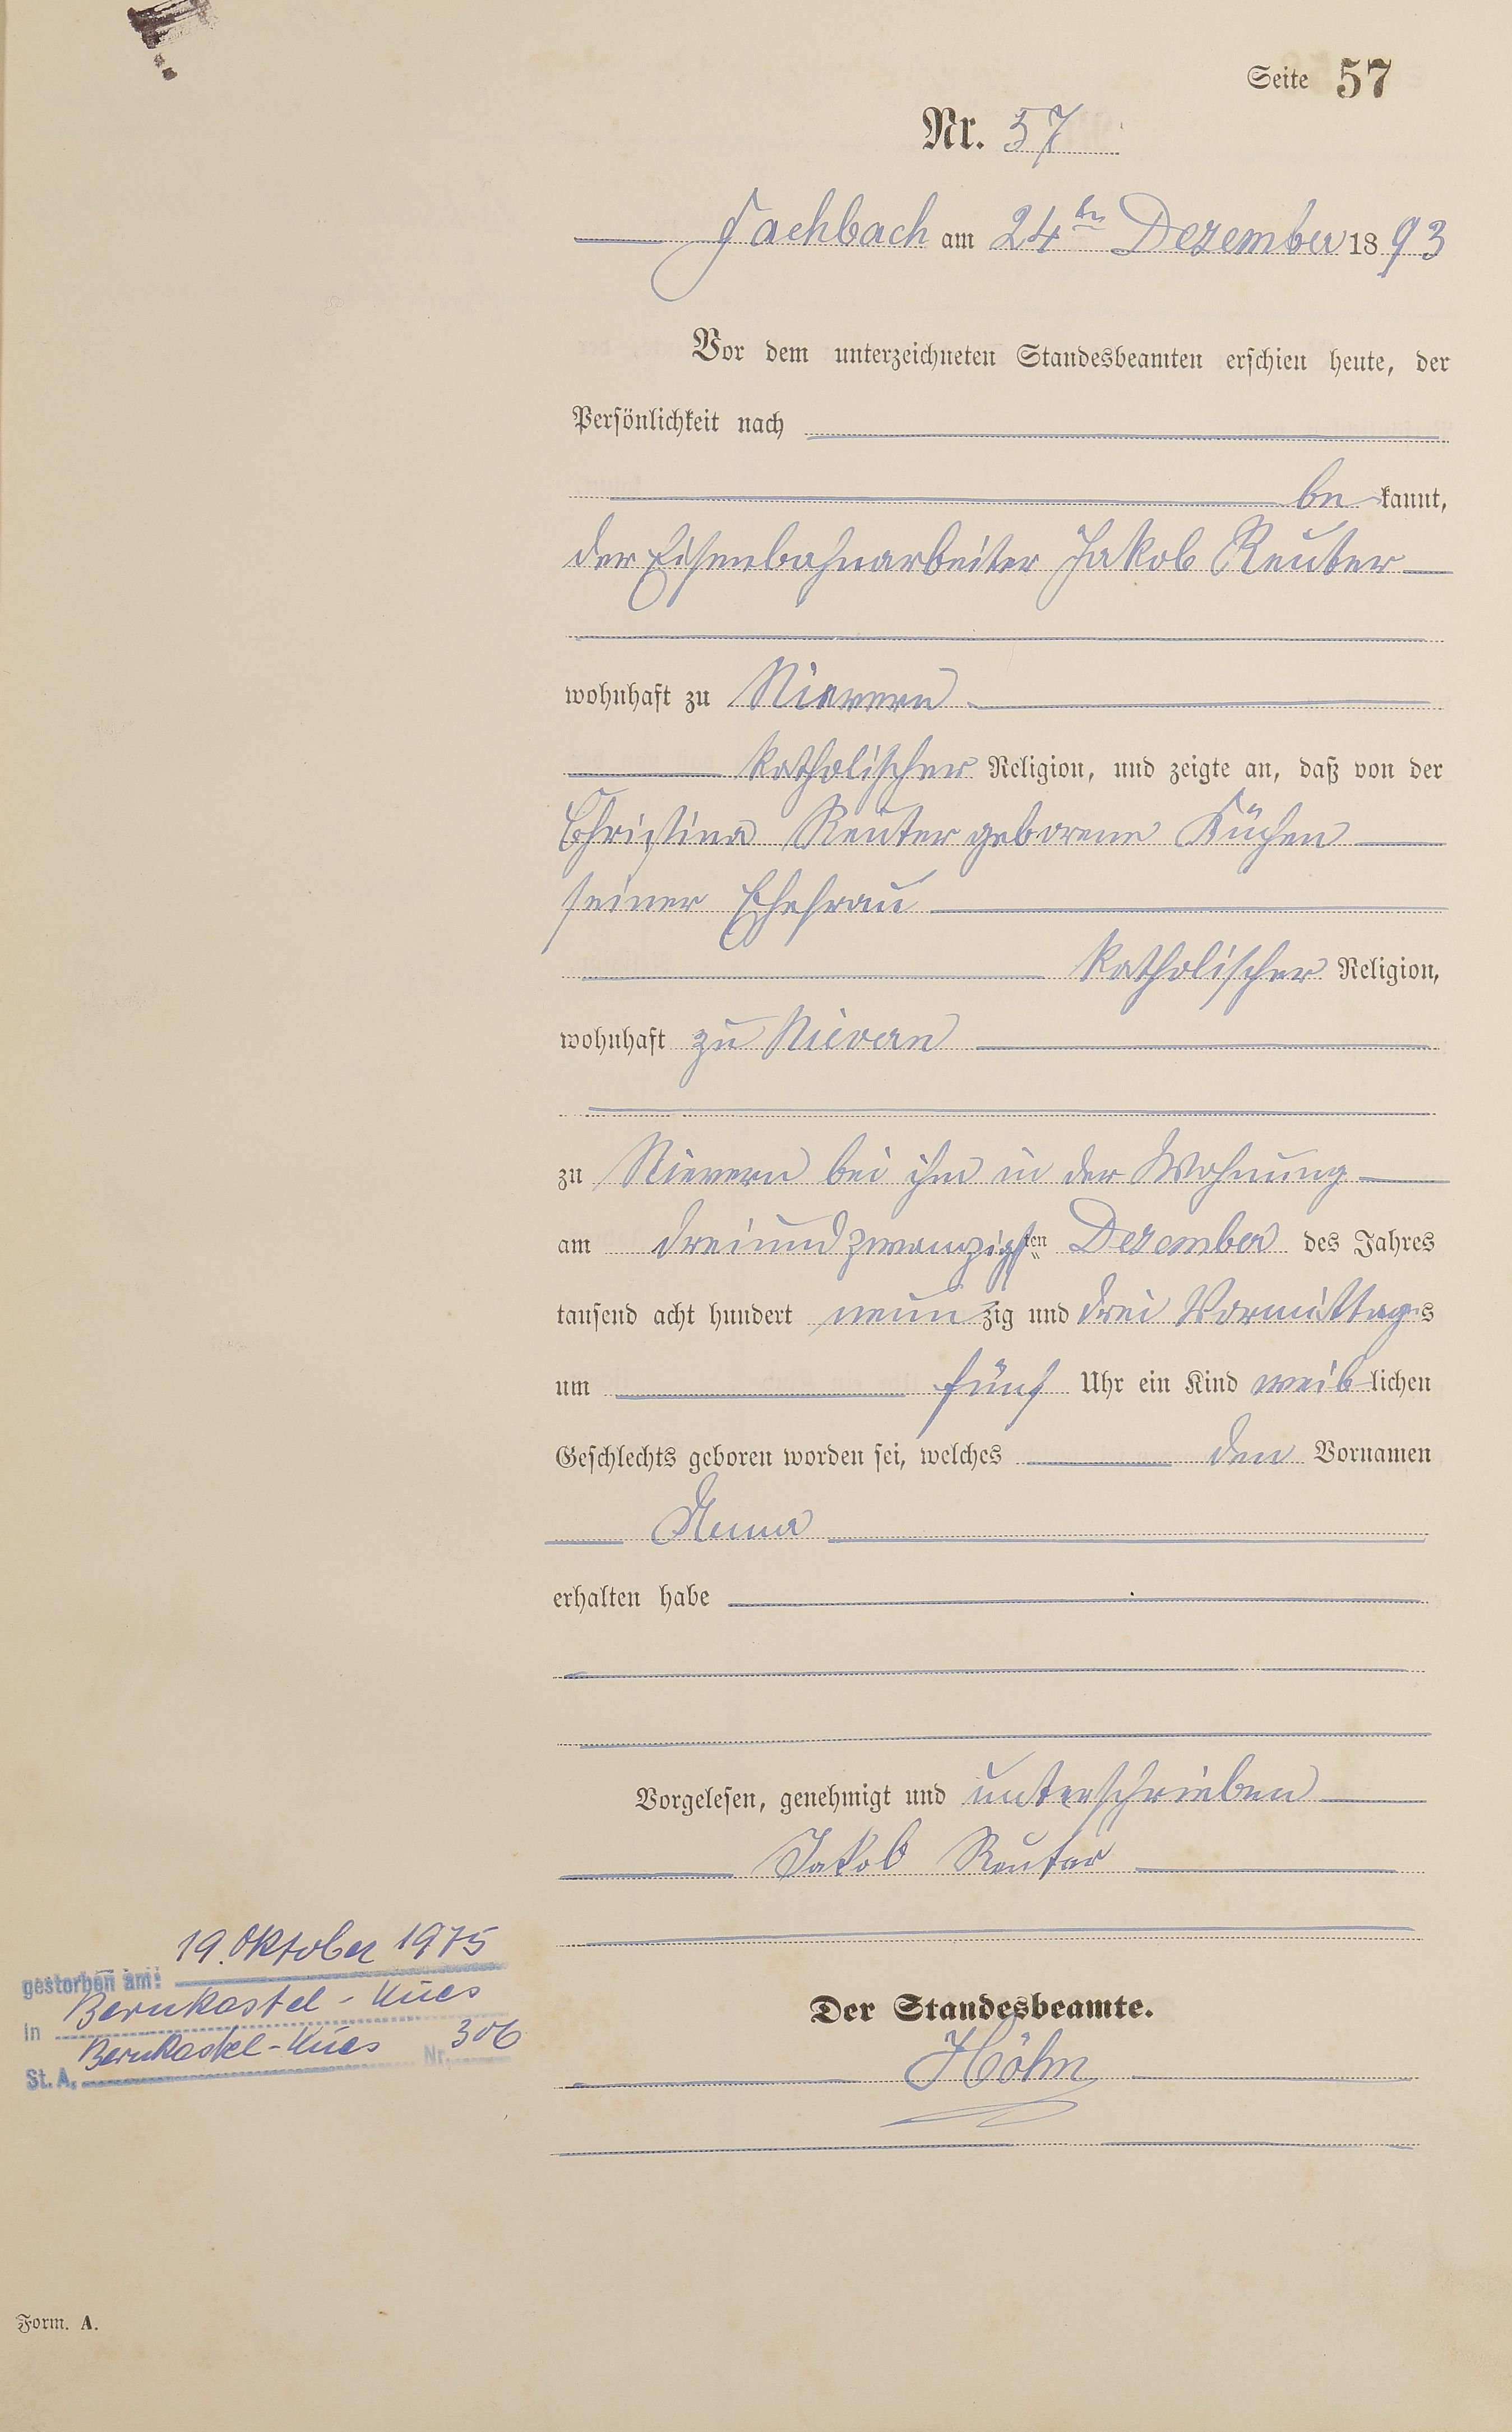 Seite 57
Nr. 57
Fachbach am 24ten Dezember 1893
Vor dem unterzeichneten Standesbeamten erschien heute, der
Persönlichkeit nach
be kannt,
der Eisenbahnarbeiter Jakob Reuter
wohnhaft zu Nievern
katholischer Religion, und zeigte an, daß von der
Christina Reuter geborene
seiner Ehefrau
katholischer Religion,
wohnhaft zu Nievern
zu Nievern bei ihm in der Wohnung
am dreiundzwanzigsten Dezember des Jahres
tausend acht hundert neun zig und drei Vormittags
um fünf Uhr ein Kind weib lichen
Geschlechts geboren worden sei, welches den Vornamen
Anna
erhalten habe
Vorgelesen, genehmigt und unterschrieben
Jakob Reuter
Der Standesbeamte.
Höhn
gestorben am: 19. Oktober 1975
in Bernkastel-Kues
St. A. Bernkastel-Kues Nr. 306
Form. A.